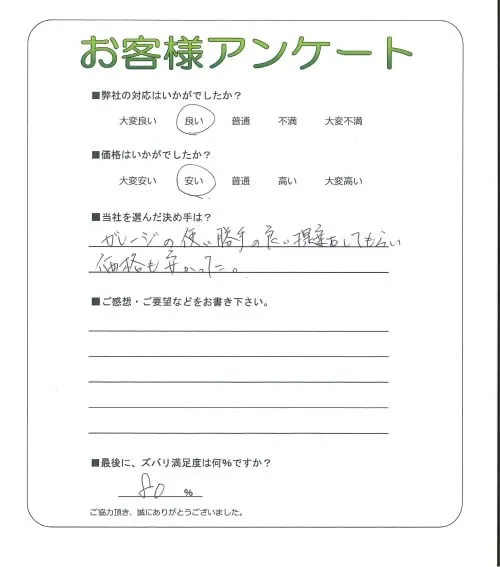 お客様アンケート
■弊社の対応はいかがでしたか？
大変良い 良い 普通 不満 大変不満
■価格はいかがでしたか？
大変安い 安い 普通 高い 大変高い
■当社を選んだ決め手は？
ガレージの使い勝手の良い提案をしてもらい
価格も安かった。
■ご感想・ご要望などをお書き下さい。
■最後に、ズバリ満足度は何％ですか？
80 ％
ご協力頂き、誠にありがとうございました。